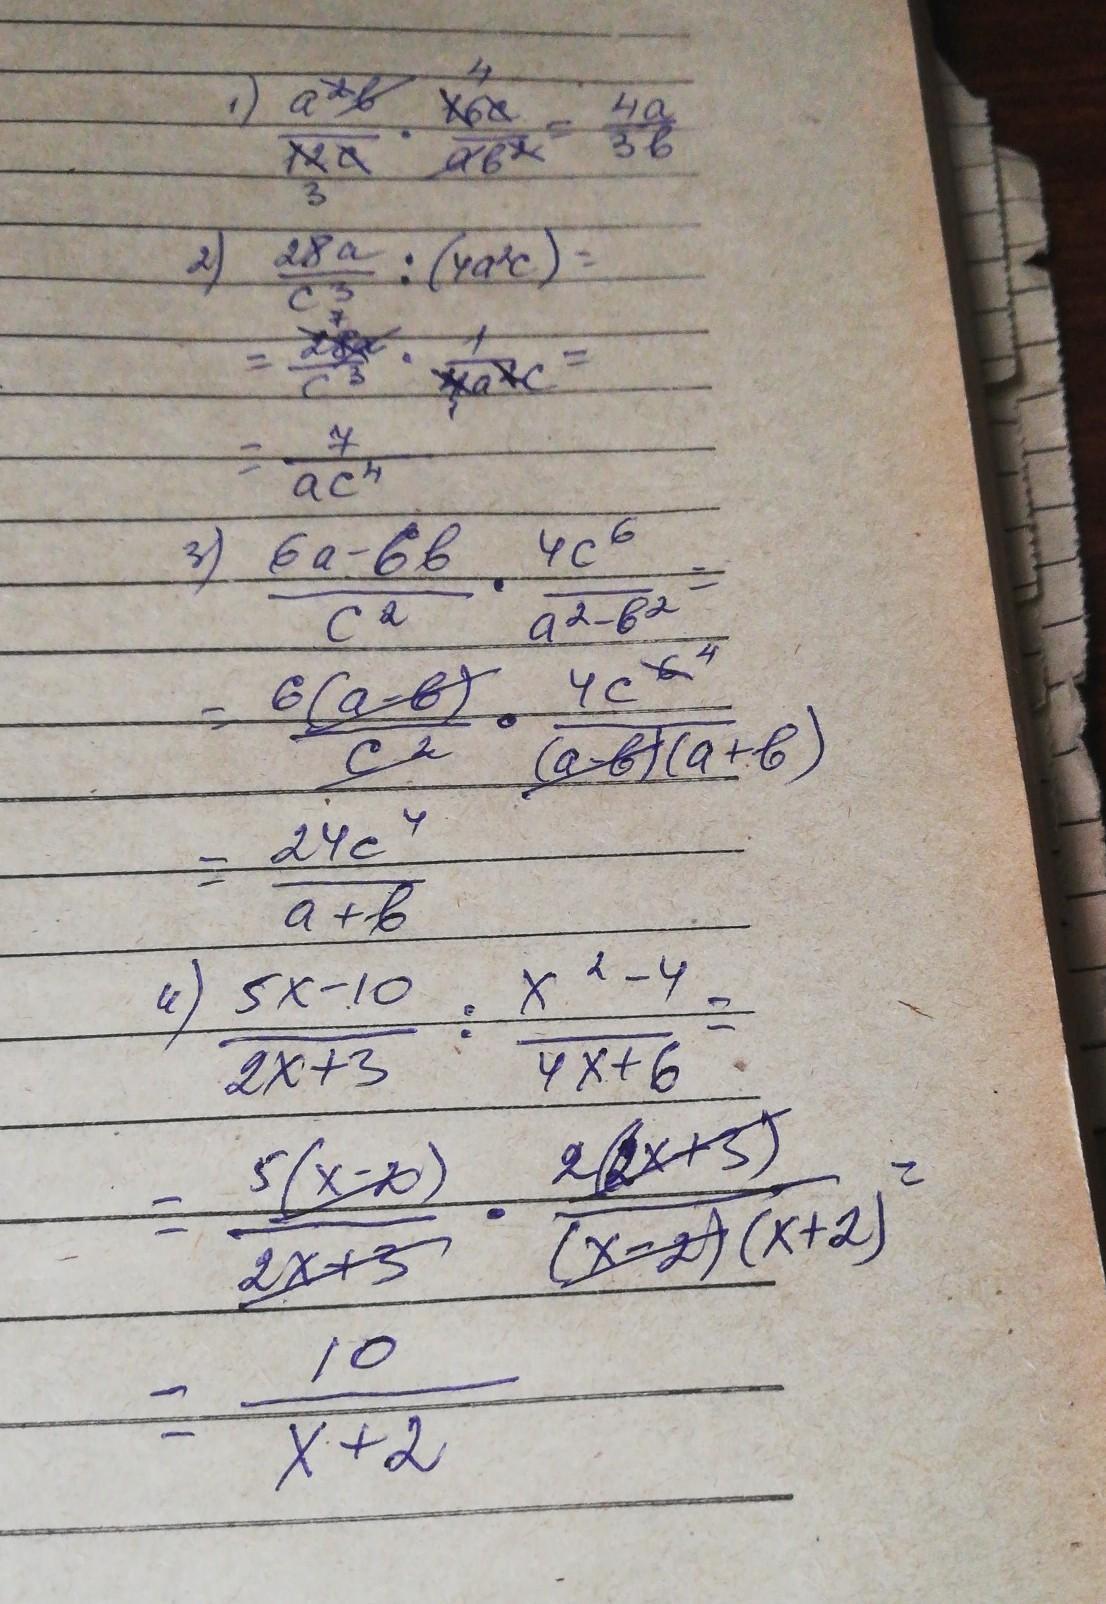 1) a²b/12c · 16c/ab² = 4a/3b
4
3
2) 28a/c³ : (4a²c) =
= 28a/c³ · 1/4a²c =
7
1
= 7/ac⁴
3) 6a-6b/c² · 4c⁶/a²-b² =
= 6(a-b)/c² · 4c⁶ ⁴/(a-b)(a+b)
= 24c⁴/a+b
4) 5x-10/2x+3 : x²-4/4x+6 =
= 5(x-2)/2x+3 · 2(2x+3)/(x-2)(x+2) =
= 10/x+2